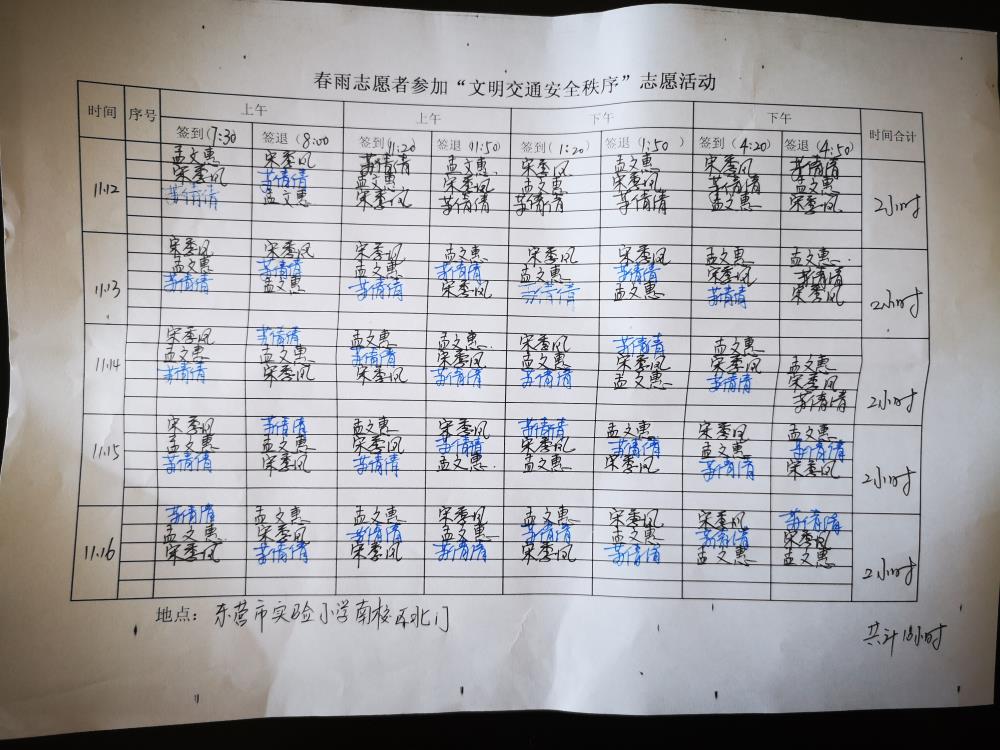 春雨志愿者参加“文明交通安全秩序”志愿活动
时间 序号 上午 上午 下午 下午 时间合计
签到(7:30 签退(8:00 签到(11:20 签退(11:50) 签到(1:20) 签退(1:50) 签到(4:20) 签退(4:50)
孟文惠 宋季凤 苏倩倩 孟文惠 宋季凤 孟文惠 宋季凤 苏倩倩
11.12 宋季凤 苏倩倩 孟文惠 宋季凤 孟文惠 宋季凤 苏倩倩 孟文惠 2小时
苏倩倩 孟文惠 宋季凤 苏倩倩 苏倩倩 苏倩倩 孟文惠 宋季凤
宋季凤 宋季凤 宋季凤 孟文惠 宋季凤 宋季凤 孟文惠 孟文惠
11.13 孟文惠 苏倩倩 孟文惠 苏倩倩 孟文惠 苏倩倩 宋季凤 苏倩倩 2小时
苏倩倩 孟文惠 苏倩倩 宋季凤 苏倩倩 孟文惠 苏倩倩 宋季凤
宋季凤 苏倩倩 孟文惠 孟文惠 宋季凤 苏倩倩 孟文惠
11.14 孟文惠 孟文惠 苏倩倩 宋季凤 孟文惠 宋季凤 宋季凤 孟文惠 2小时
苏倩倩 宋季凤 宋季凤 苏倩倩 苏倩倩 孟文惠 苏倩倩 宋季凤
苏倩倩
宋季凤 苏倩倩 孟文惠 宋季凤 苏倩倩 孟文惠 宋季凤 孟文惠
11.15 孟文惠 孟文惠 宋季凤 苏倩倩 宋季凤 苏倩倩 孟文惠 苏倩倩 2小时
苏倩倩 宋季凤 苏倩倩 孟文惠 孟文惠 宋季凤 苏倩倩 宋季凤
苏倩倩 孟文惠 孟文惠 宋季凤 孟文惠 宋季凤 宋季凤 苏倩倩
11.16 孟文惠 宋季凤 苏倩倩 孟文惠 苏倩倩 孟文惠 苏倩倩 宋季凤 2小时
宋季凤 苏倩倩 宋季凤 苏倩倩 宋季凤 苏倩倩 孟文惠 孟文惠
地点：东营市实验小学南校区北门
共计10小时